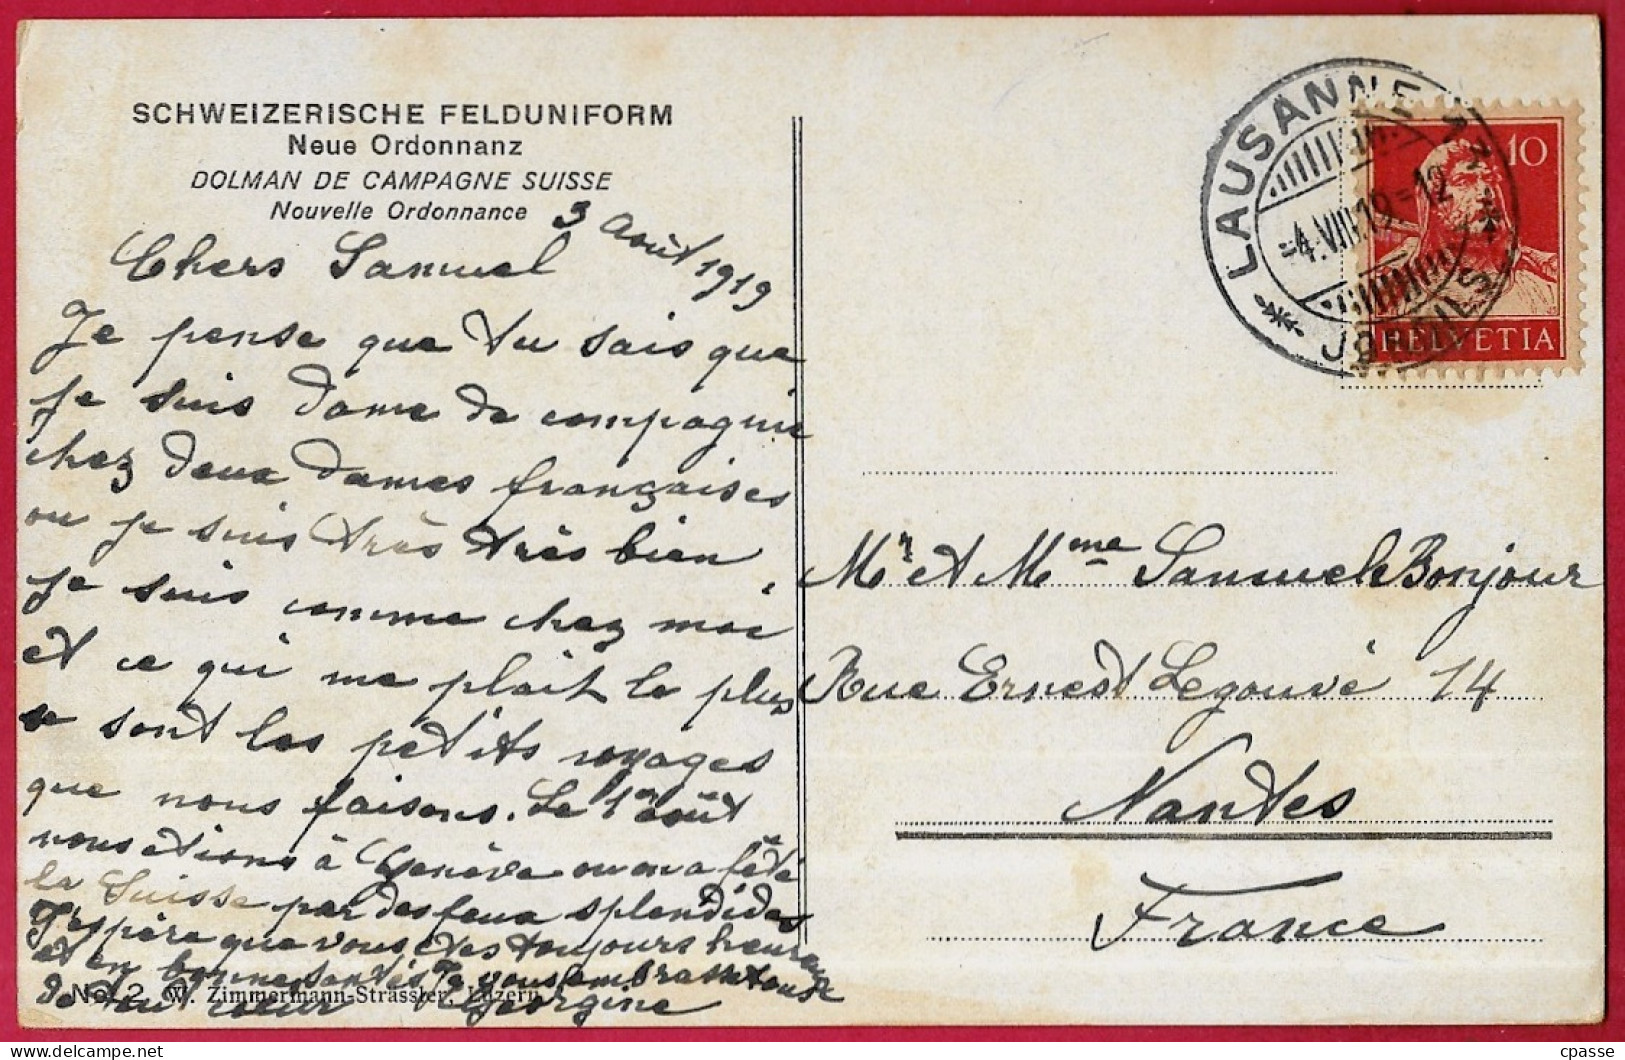 SCHWEIZERISCHE FELDUNIFORM
Neue Ordonnanz
DOLMAN DE CAMPAGNE SUISSE
Nouvelle Ordonnance
3 Août 1919
Chers Samuel
Je pense que tu sais que
je suis dame de compagnie
chez deux dames françaises
ou je suis très très bien,
je suis comme chez moi
et ce qui me plait le plus
se sont les petits voyages
que nous faisons. Le 1er août
nous etions à Genève ou on a fêté
la Suisse par des feux splendides
J'espère que vous etes toujours heureux
et en bonne santés Je vous embrasse tous
de tout cœur Georgine
No. 2 W. Zimmermann-Strässler, Luzern
LAUSANNE
=4.VIII.19=12
10
HELVETIA
Mr et Mme Samuel Bonjour
Rue Ernest Legouvé 14
Nantes
France
cpasse